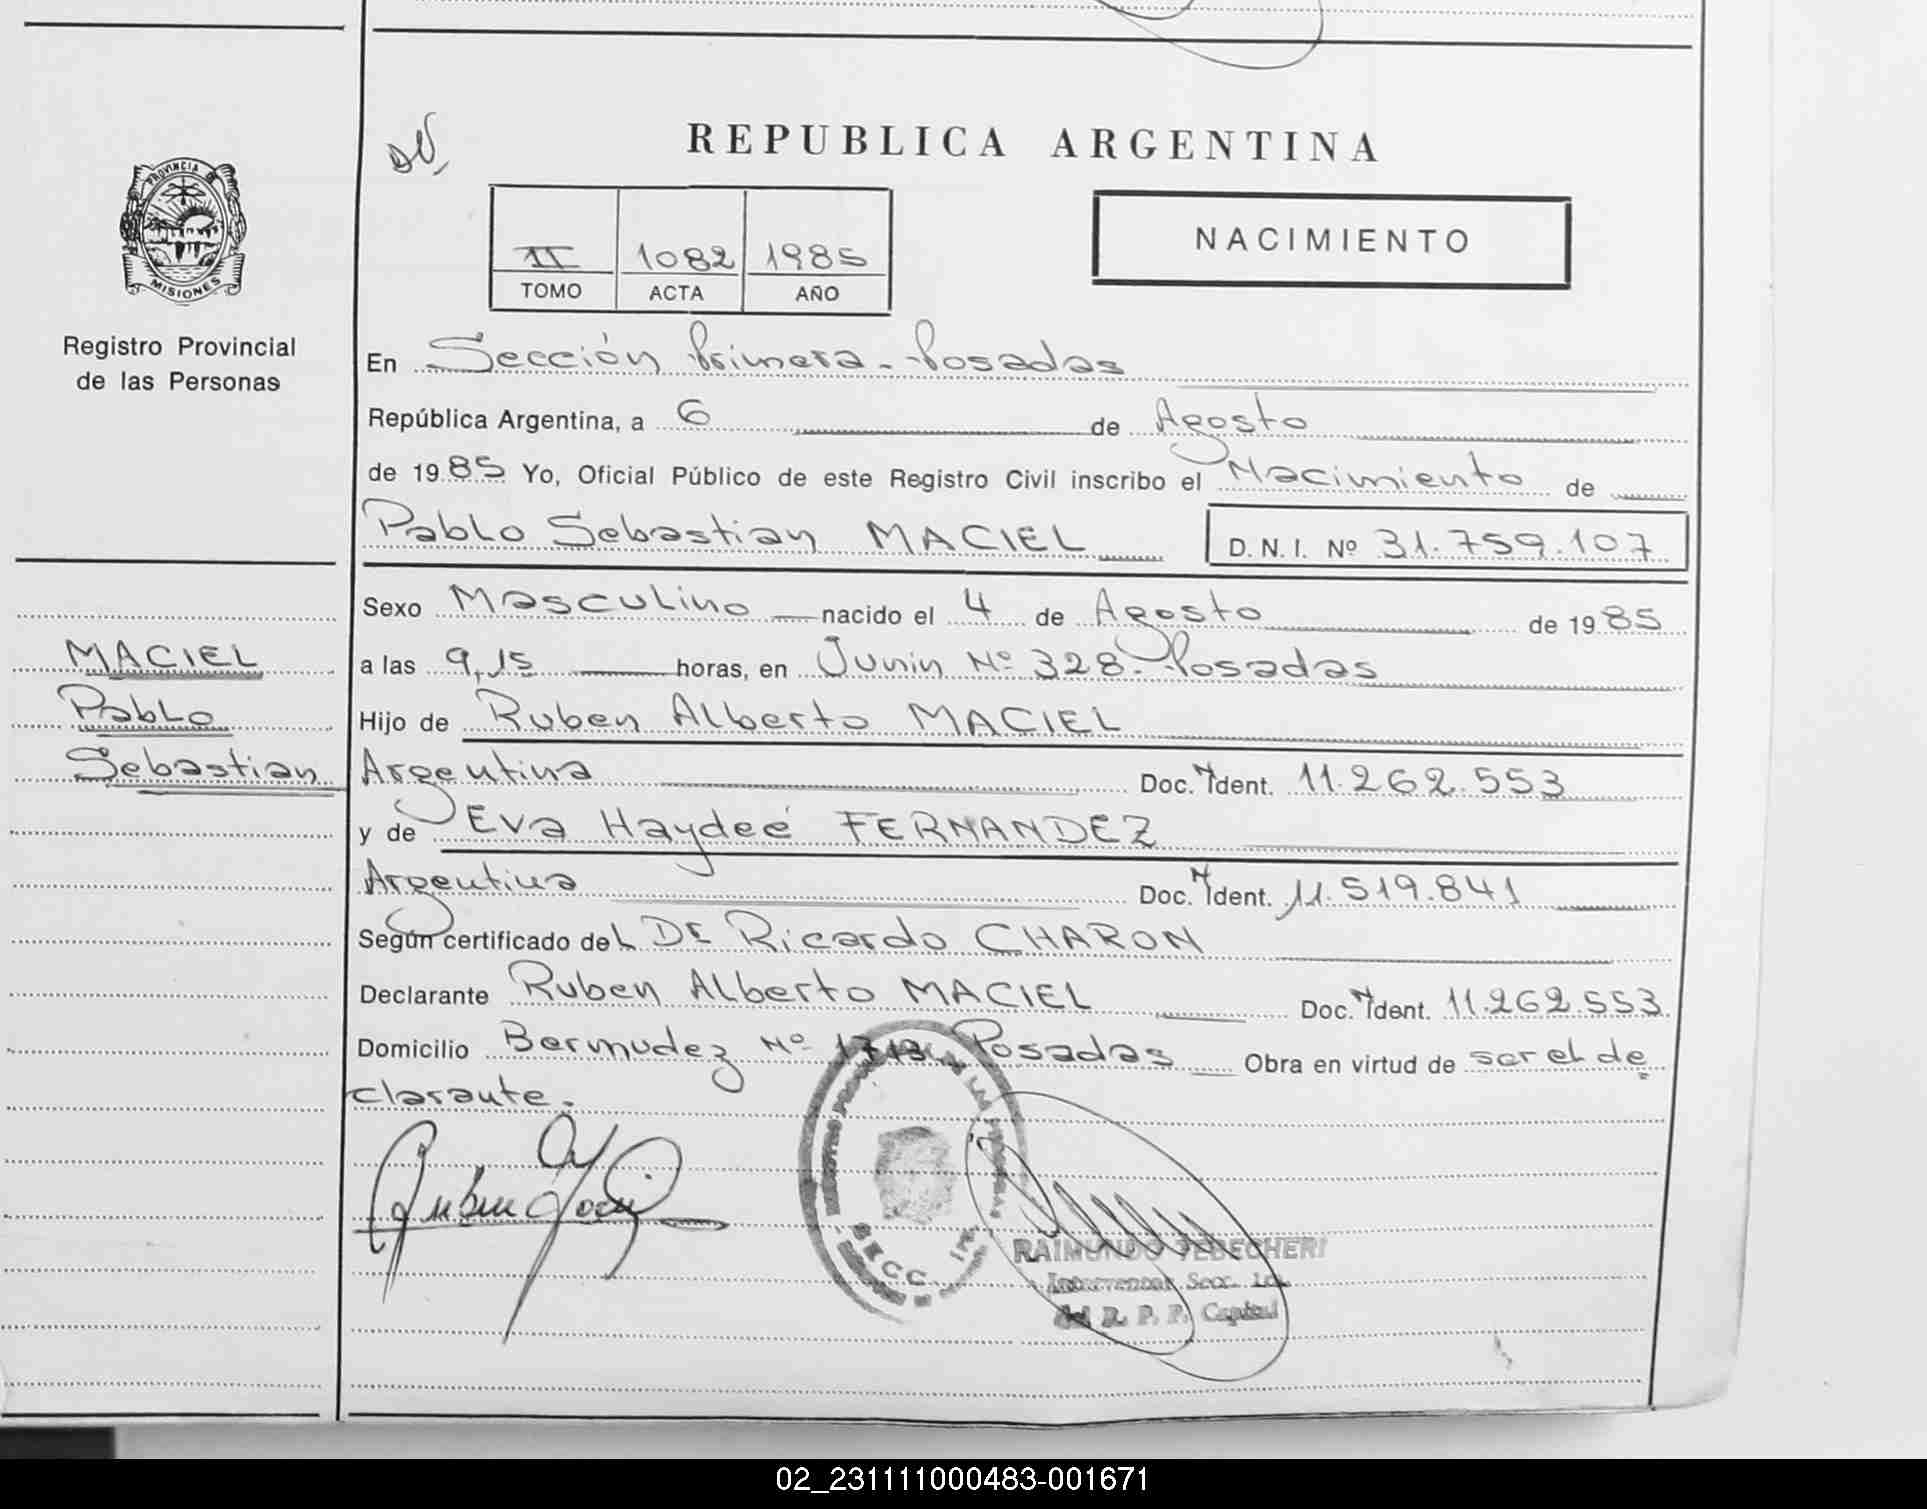 REPUBLICA ARGENTINA
PROVINCIA DE
MISIONES
Registro Provincial
de las Personas
II 1082 1985
TOMO ACTA AÑO
NACIMIENTO
En Sección Primera - Posadas
República Argentina, a 6 de Agosto
de 1985 Yo, Oficial Público de este Registro Civil inscribo el Nacimiento de
Pablo Sebastian MACIEL D. N. I. Nº 31.759.107
Sexo Masculino nacido el 4 de Agosto de 1985
MACIEL
Pablo
Sebastian
a las 9,15 horas, en Junin Nº 328 - Posadas
Hijo de Ruben Alberto MACIEL
Argentina Doc. N Ident. 11.262.553
y de Eva Haydeé FERNANDEZ
Argentina Doc. N Ident. 11.519.841
Según certificado del Dr Ricardo CHARON
Declarante Ruben Alberto MACIEL Doc. N Ident. 11.262.553
Domicilio Bermudez Nº 1713 Posadas Obra en virtud de ser el de
clarante.
SECC. 1ra.
RAIMUNDO TEBECHERI
Interventor Secc. 1a.
del R. P. P. Capital
02_231111000483-001671